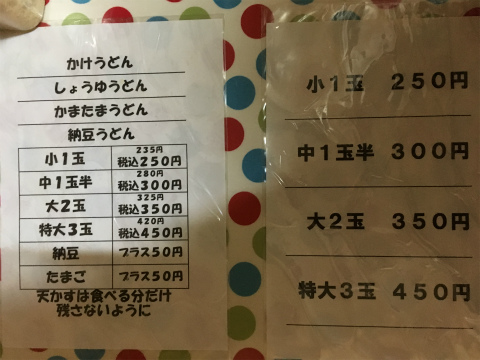 かけうどん
しょうゆうどん
かまたまうどん
納豆うどん
小1玉 235円 税込250円
中1玉半 280円 税込300円
大2玉 325円 税込350円
特大3玉 420円 税込450円
納豆 プラス50円
たまご プラス50円
天かすは食べる分だけ
残さないように
小1玉 250円
中1玉半 300円
大2玉 350円
特大3玉 450円